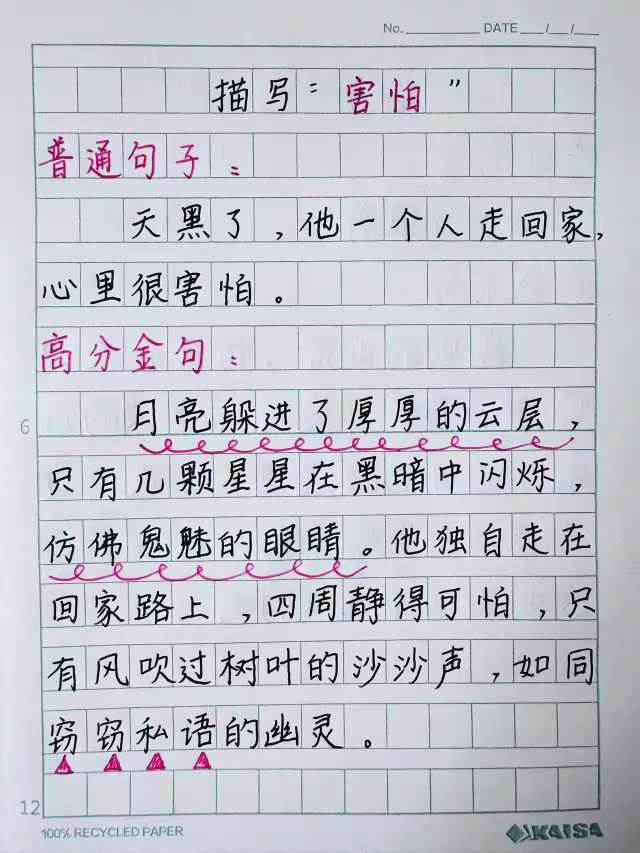 No. DATE / /
描写“害怕”
普通句子：
天黑了，他一个人走回家，
心里很害怕。
高分金句：
6
月亮躲进了厚厚的云层，
只有几颗星星在黑暗中闪烁，
仿佛鬼魅的眼睛。他独自走在
回家路上，四周静得可怕，只
有风吹过树叶的沙沙声，如同
窃窃私语的幽灵。
12
100% RECYCLED PAPER
KAISA